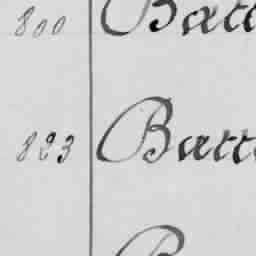 800 Batt
823 Batt